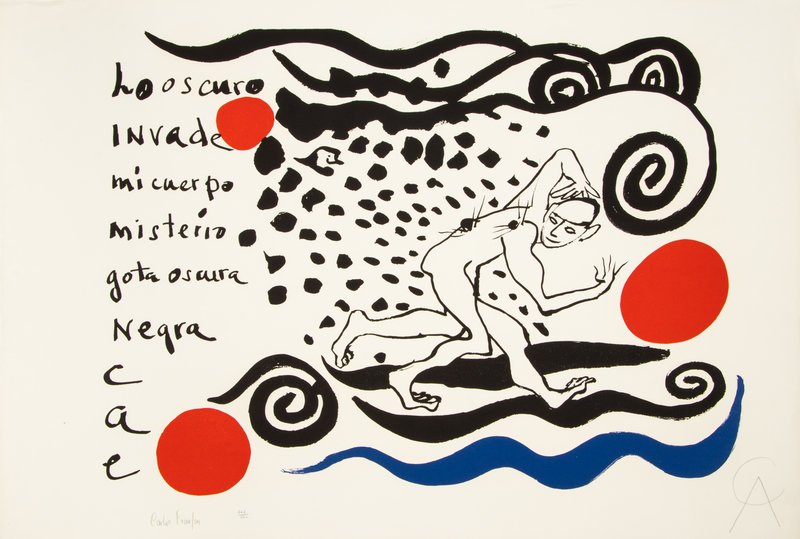 Lo oscuro
INVade
mi cuerpo
misterio
gota oscura
Negra
c
a
e
CA